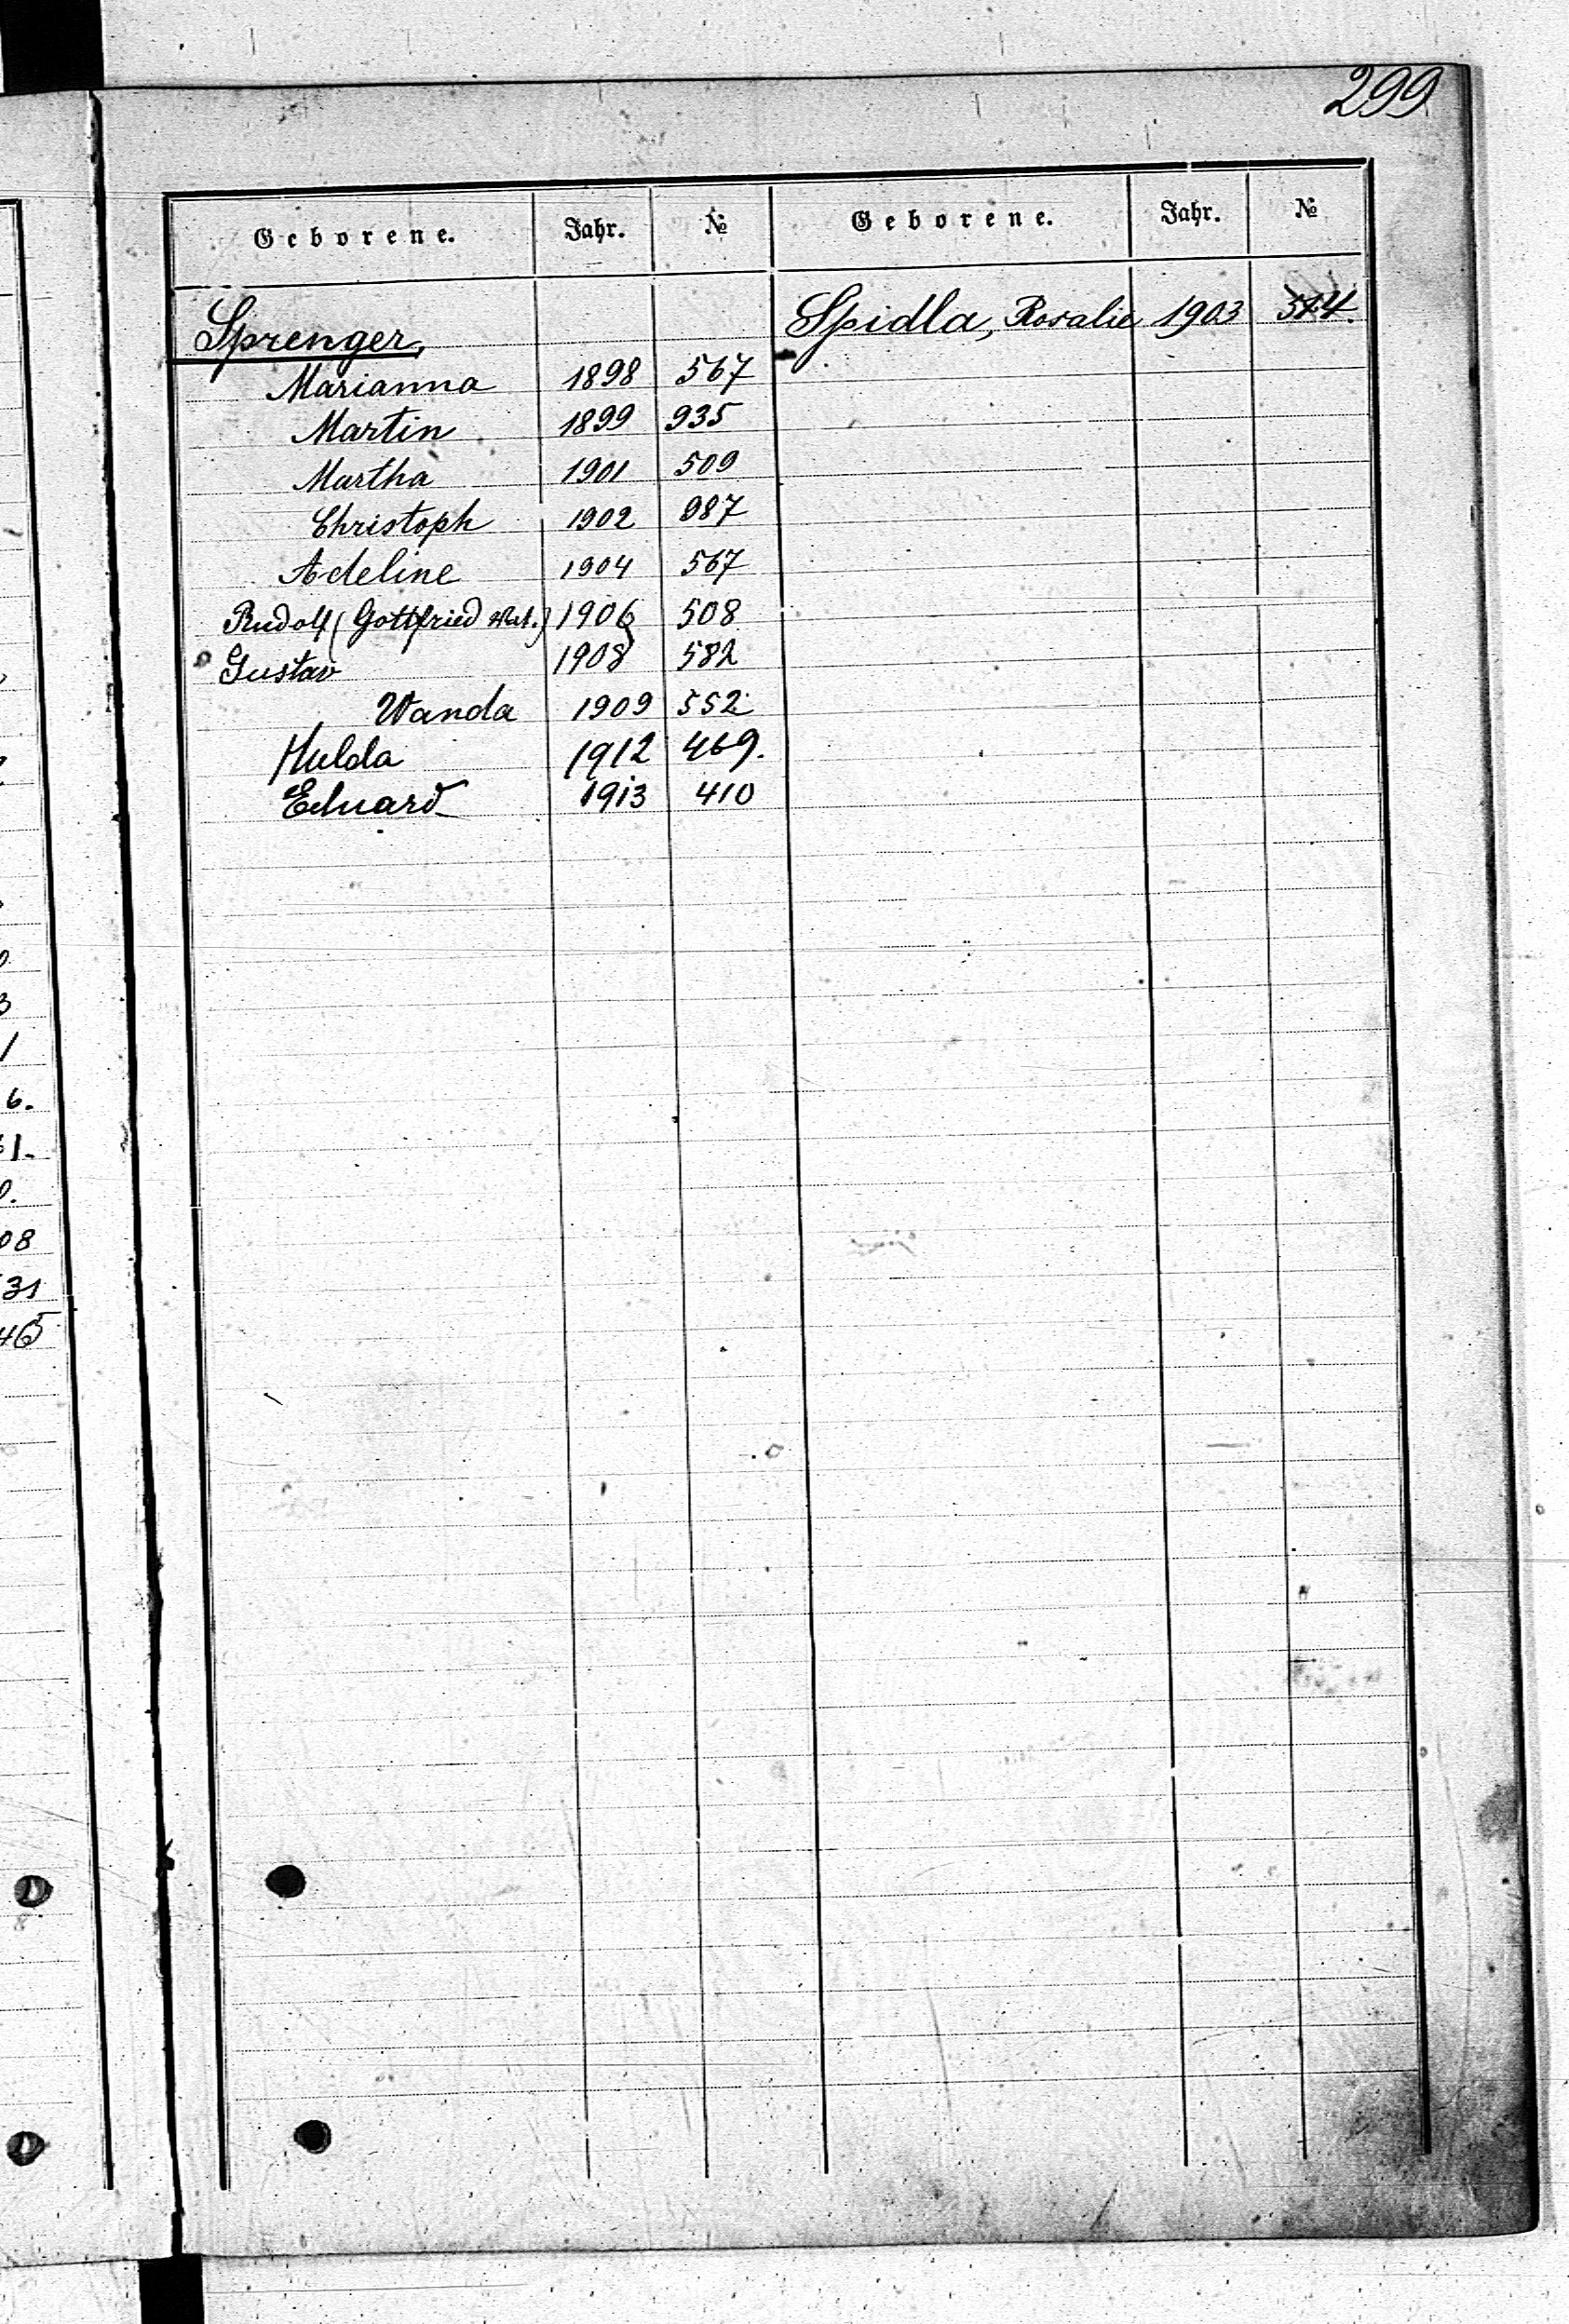 299
Geborene. Jahr. № Geborene. Jahr. №
Sprenger, Spidla, Rosalie 1903 514.
Marianna 1898 567
Martin 1899 935
Martha 1901 509
Christoph 1902 987
Adeline 1904 567
Rudolf (Gottfried Vat.) 1906 508
Gustav 1908 582
Wanda 1909 552
Hulda 1912 469.
Eduard 1913 410
6.
1.
08
31